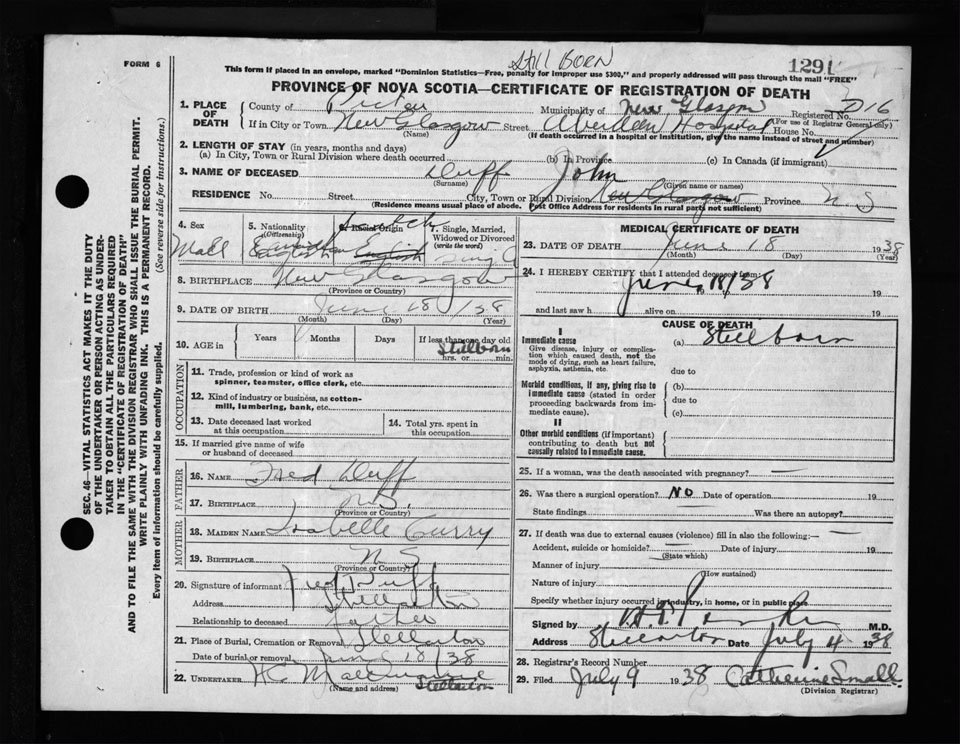 FORM 6
Still BORN
1291
This form if placed in an envelope, marked "Dominion Statistics—Free, penalty for improper use $300," and properly addressed will pass through the mail "FREE"
PROVINCE OF NOVA SCOTIA—CERTIFICATE OF REGISTRATION OF DEATH
1. PLACE OF DEATH
County of Pictou Municipality of New Glasgow Registered No. D16
(For use of Registrar General only)
If in City or Town New Glasgow Street Aberdeen Hospital House No.
(Name) (If death occurred in a hospital or institution, give the name instead of street and number)
2. LENGTH OF STAY (in years, months and days)
(a) In City, Town or Rural Division where death occurred (b) In Province (c) In Canada (if immigrant)
3. NAME OF DECEASED Duff John
(Surname) (Given name or names)
RESIDENCE No. Street City, Town or Rural Division New Glasgow Province N.S
(Residence means usual place of abode. Post Office Address for residents in rural parts not sufficient)
4. Sex Male
5. Nationality (Citizenship)
6. Racial Origin
7. Single, Married, Widowed or Divorced (write the word) Single
8. BIRTHPLACE New Glasgow
(Province or Country)
9. DATE OF BIRTH June 18 / 38
(Month) (Day) (Year)
10. AGE in Years Months Days If less than one day old
Stillborn
hrs. or min.
OCCUPATION
11. Trade, profession or kind of work as spinner, teamster, office clerk, etc.
12. Kind of industry or business, as cotton-mill, lumbering, bank, etc.
13. Date deceased last worked at this occupation
14. Total yrs. spent in this occupation
15. If married give name of wife or husband of deceased
FATHER
16. NAME Fred Duff
17. BIRTHPLACE N.S.
(Province or Country)
MOTHER
18. MAIDEN NAME Isabelle Curry
19. BIRTHPLACE N.S
(Province or Country)
20. Signature of informant Fred Duff
Address Stellarton
Relationship to deceased father
21. Place of Burial, Cremation or Removal Stellarton
Date of burial or removal June 18/38
22. UNDERTAKER
(Name and address) Stellarton
MEDICAL CERTIFICATE OF DEATH
23. DATE OF DEATH June 18 1938
(Month) (Day) (Year)
24. I HEREBY CERTIFY that I attended deceased from:
June 18/38
19 19
and last saw h alive on 19
CAUSE OF DEATH
I
Immediate cause
Give disease, injury or complication which caused death, not the mode of dying, such as heart failure, asphyxia, asthenia, etc.
(a) Stillborn
due to
Morbid conditions, if any, giving rise to immediate cause (stated in order proceeding backwards from immediate cause).
(b)
due to
(c)
II
Other morbid conditions (if important) contributing to death but not causally related to immediate cause.
25. If a woman, was the death associated with pregnancy? —
26. Was there a surgical operation? NO Date of operation 19
State findings Was there an autopsy?
27. If death was due to external causes (violence) fill in also the following:—
Accident, suicide or homicide? — Date of injury 19
(State which)
Manner of injury
(How sustained)
Nature of injury
Specify whether injury occurred in industry, in home, or in public place
Signed by M.D.
Address Stellarton Date July 4 1938
28. Registrar's Record Number
29. Filed July 9 1938 Catherine Small
(Division Registrar)
SEC. 46—VITAL STATISTICS ACT MAKES IT THE DUTY
OF THE UNDERTAKER OR PERSON ACTING AS UNDER-
TAKER TO OBTAIN ALL THE PARTICULARS REQUIRED
IN THE "CERTIFICATE OF REGISTRATION OF DEATH"
AND TO FILE THE SAME WITH THE DIVISION REGISTRAR WHO SHALL ISSUE THE BURIAL PERMIT.
WRITE PLAINLY WITH UNFADING INK. THIS IS A PERMANENT RECORD.
Every item of information should be carefully supplied. (See reverse side for instructions.)